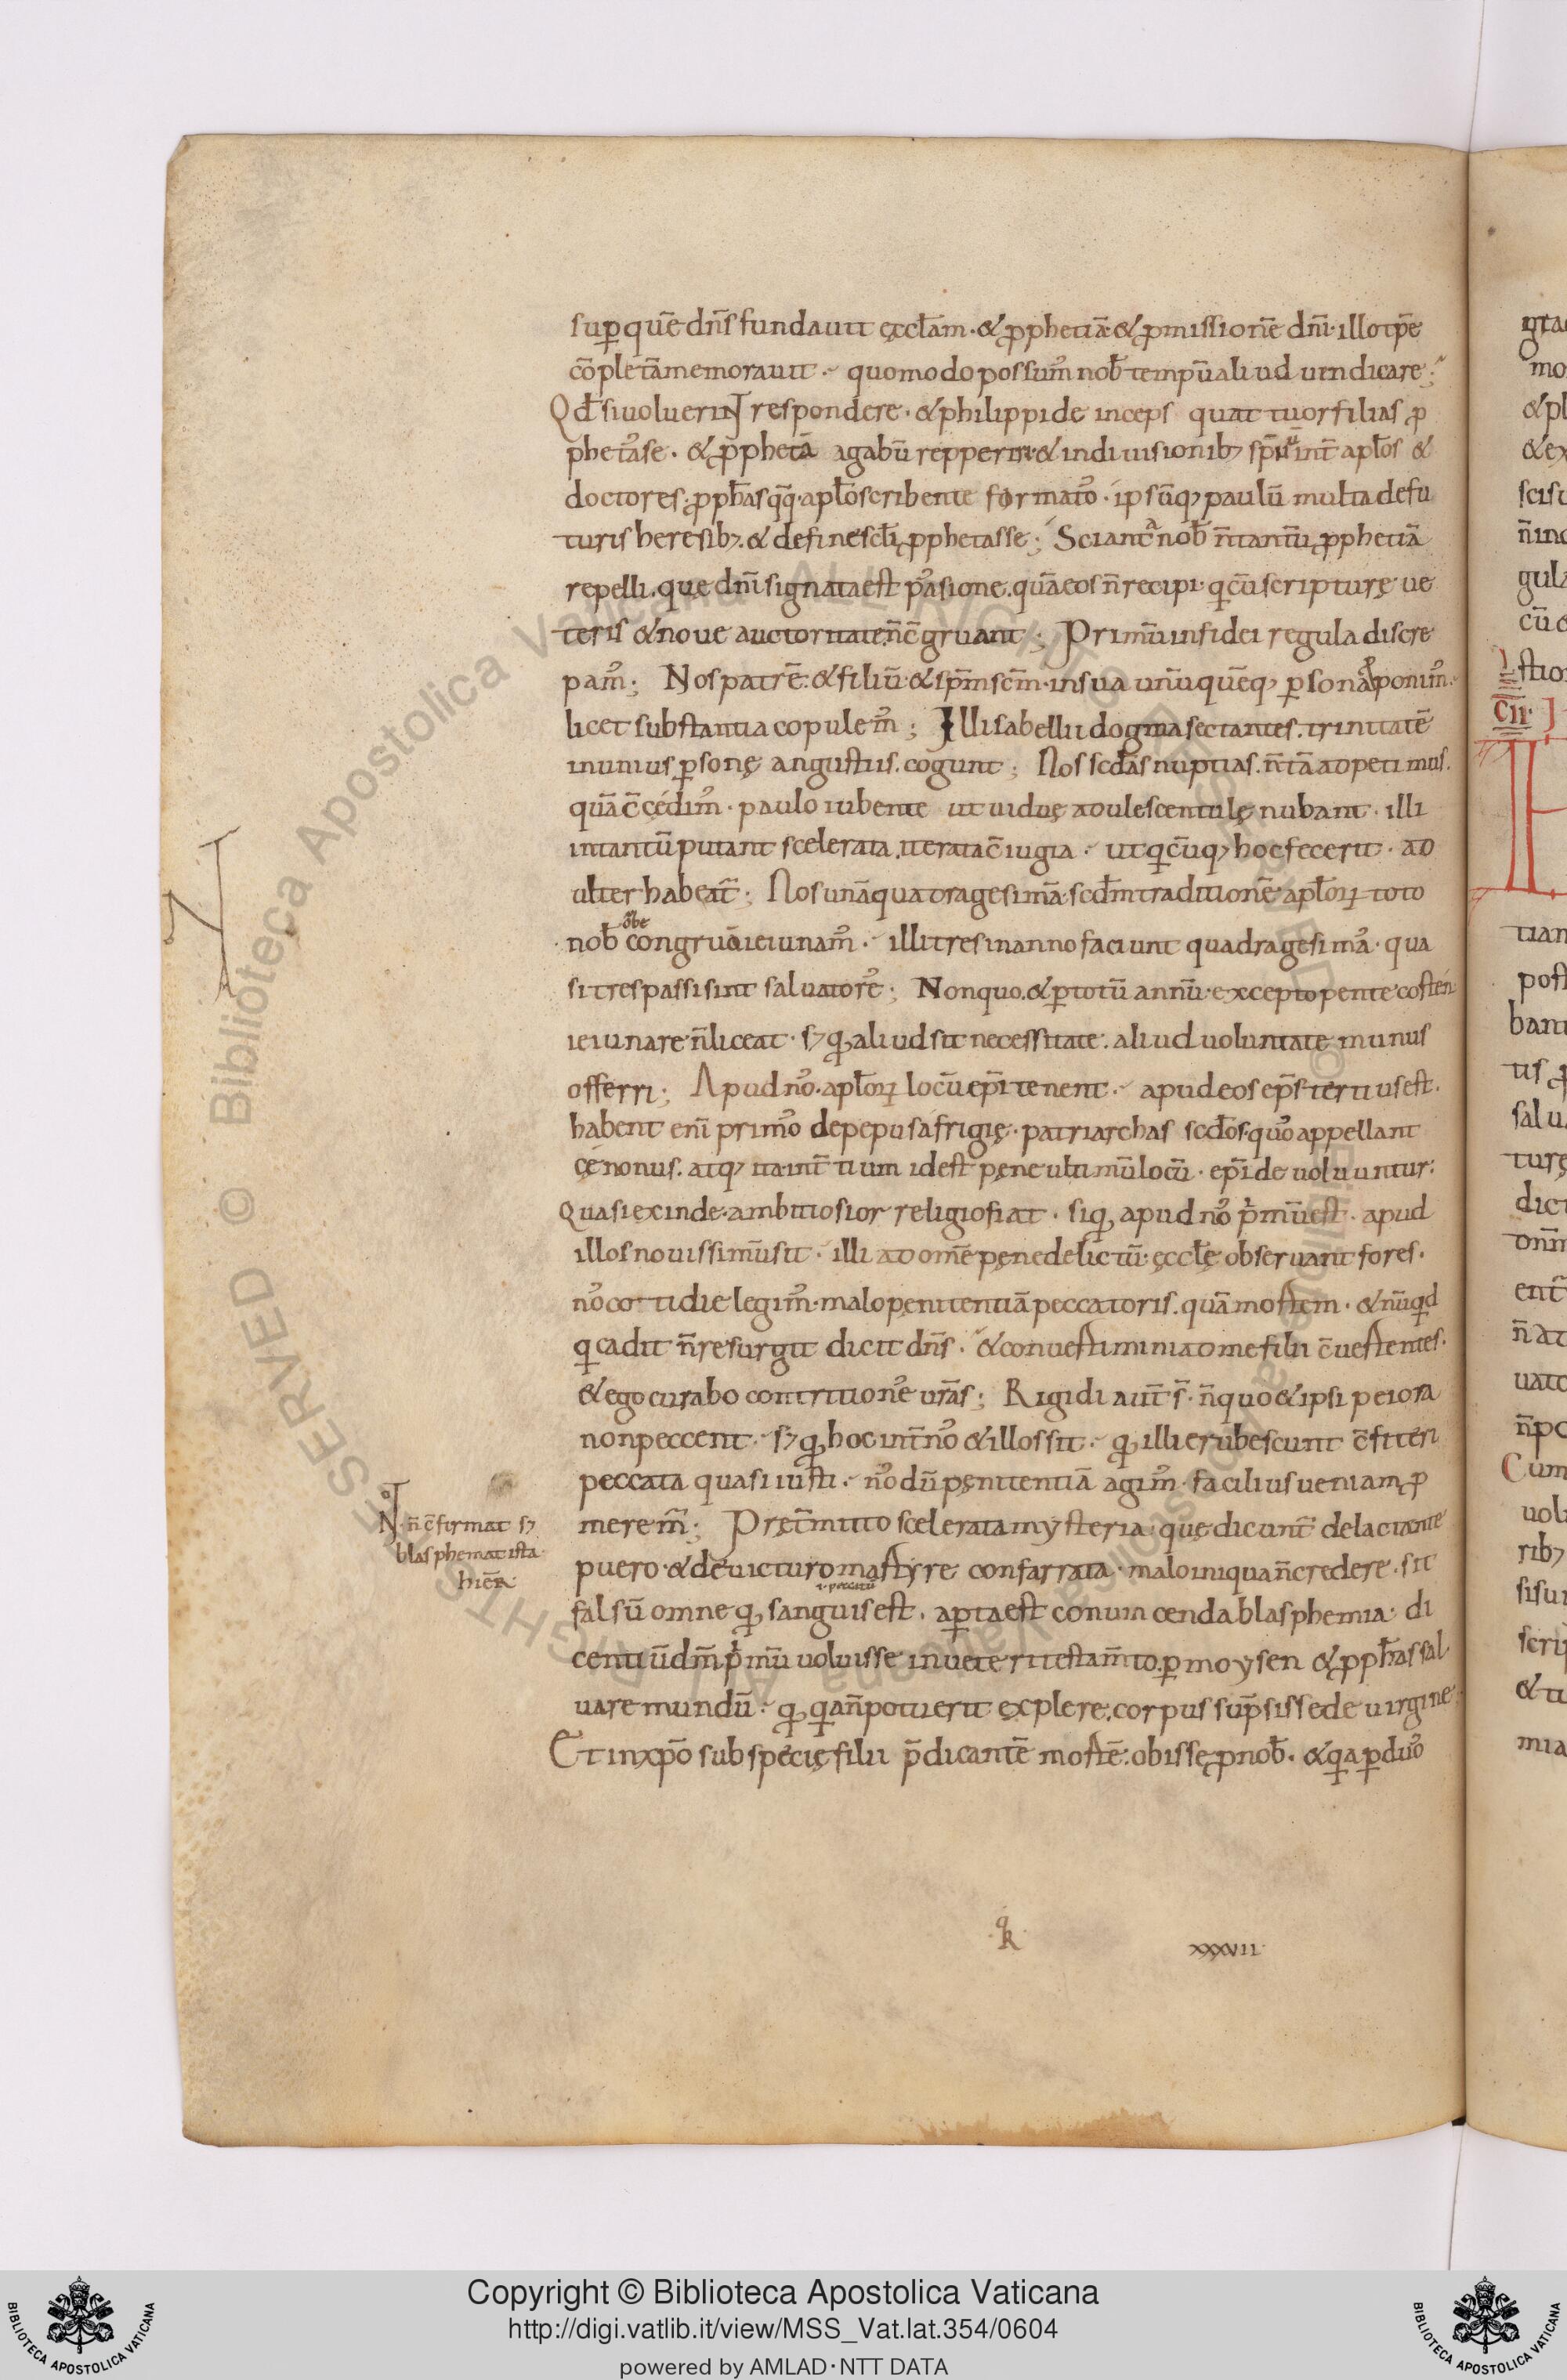 sup quē dn̄s fundauit ęcctam · & pphetiā & pmissionē dn̄i · illo tp̄e
cōpletā memorauit · quomodo possum᾿ nob̄ tempū aliud uindicare ;
Qd̄ si uoluerint respondere · & philippi deinceps quattuor filias p
phetas᾿se · & pphetā agabū repperiri · & in diuisionib; sp̄s int̄ apt̄os &
doctores · pph̄as qq̄ · apt̄o scribente formatos · ipsūq; paulū multa de fu
turis heresib; · & de fine sct̄i pphetasse ; Sciant a nob̄ n̄ tantū pphetiā
repelli · quę dn̄i signata est passione · quā eos n̄ recipi · qi cū scripturę ue
teris & noue auctoritate n̄ c̄gruant ; Primū in fidei regula discre
pam᾿ ; Nos patrē · & filiū · & sp̄m sc̄m · in sua unū quēq; psona ponim᾿ ·
licet substantia copulem᾿ ; Illi sabellii dogma sectantes · trinitatē
in unius psonę angustiis · cogunt ; Nos scd̄as nuptias · n̄ tā adpetimus ·
quā c̄cędim᾿ · paulo iubente ut uiduę adulescentulę nubant · illi
in tantū putant scelerata · iterata c̄iugia · ut qicūq; hoc fecerit · ad
ulter habeat᾿ ; Nos unā quadragesimā · scd̄m traditionē apt̄oꝝ toto
orbe
nob̄ congruo ieiunam᾿ · illi tres in anno faciunt quadragesimas · qua
si tres passi sint saluatores ; Non quo · & p totū annū · excepto pentecosten
ieiunare n̄ liceat · s; q aliud sit necessitate · aliud uoluntate munus
offerri ; Apud nos · apt̄oꝝ locū ep̄i tenent · apud eos ep̄s tertius est ·
habent eni primos de pepusa frigię · patriarchas scd̄os · quos appellant
cęnonus · atq; ita int̄tium id est pęne ultimū locū · ep̄i deuoluuntur ·
Quasi exinde · ambitiosior religio fiat · si q apud nos pmū est · apud
illos nouissimū sit · illi ad omē pęne delictū · ęcct̄ę obseruant fores ·
nos cottidie legim᾿ · malo penitentiā peccatoris · quā mortem · & nūqid
qi cadit n̄ resurgit dicit dn̄s · & conuertimini ad me filii c̄uertentes ·
& ego curabo contritiones uras ; Rigidi aut̄ s̄ · n̄ quo & ipsi peiora
non peccent · s; q hoc int̄ nos & illos sit · q illi erubescunt c̄fiteri
peccata quasi iusti · nos dū pęnitentiā agim᾿ · facilius ueniam p
merem᾿ ; Pręt̄mitto scelerata mysteria · quę dicunt᾿ de lactante
N · n̄ c̄firmat s;
blasphemat ista
hier̄
puero · & de uicturo martyre confarrata · malo iniqua n̄ credere · sit
·i· peccatū
falsū omne q sanguis est · apta est conuincenda blasphemia · di
centiū dm̄ pmū uoluisse in ueteri testam̄to · p moysen & pph̄as sal
uare mundū · q qia n̄ potuerit explere · corpus sūpsisse de uirgine ·
Et in xpo sub specię filii p̄dicante mortē · obisse p nob̄ · & qia p duos
q k
xxxvii
Copyright © Biblioteca Apostolica Vaticana
http://digi.vatlib.it/view/MSS_Vat.lat.354/0604
powered by AMLAD·NTT DATA